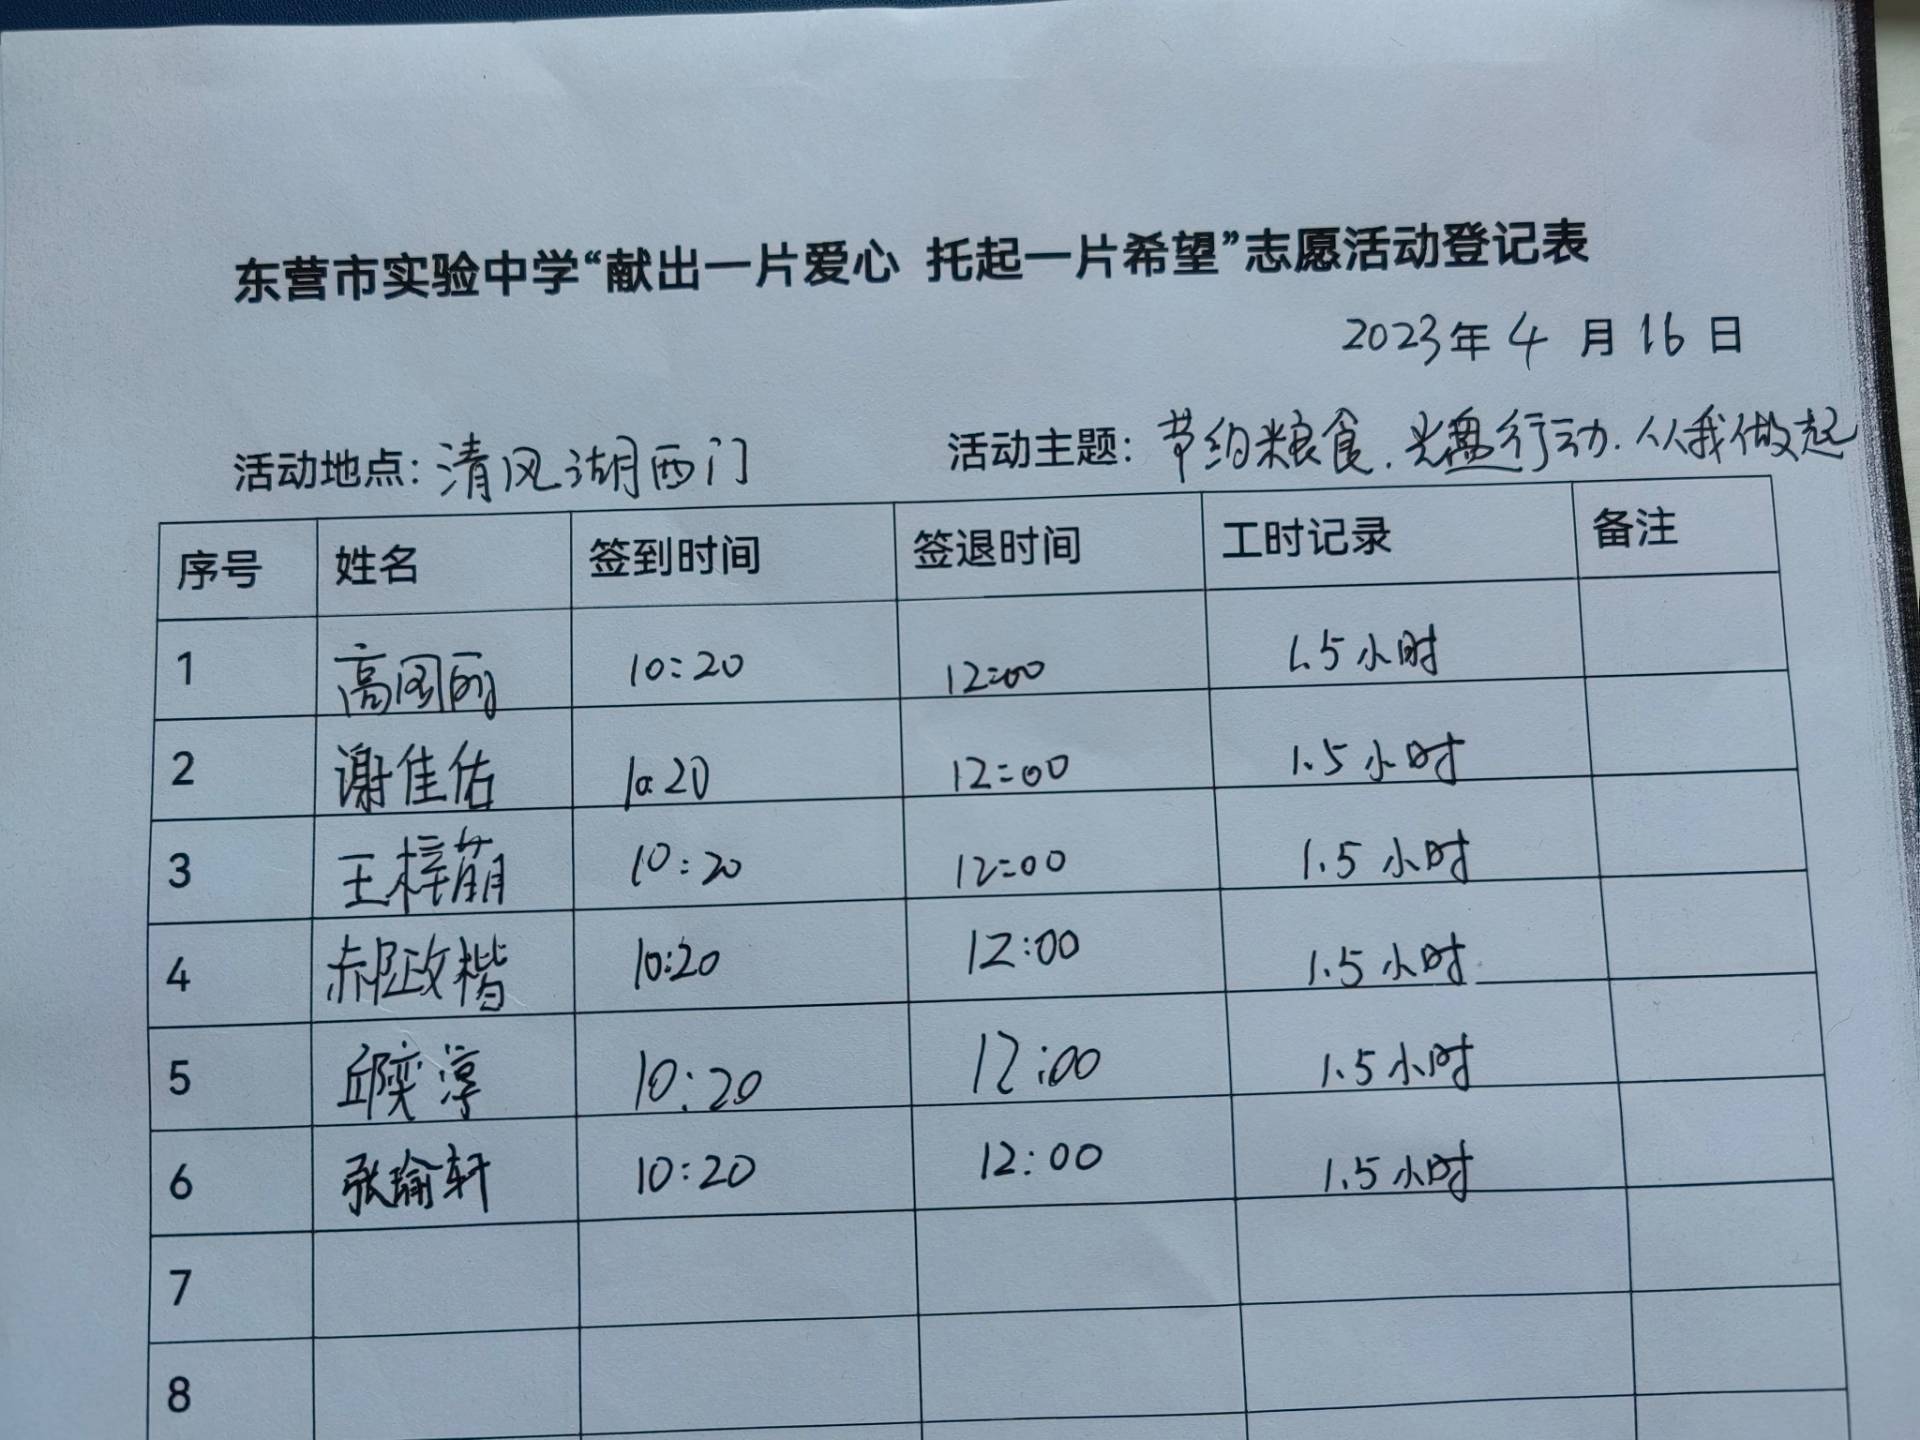 东营市实验中学“献出一片爱心 托起一片希望”志愿活动登记表
2023年4月16日
活动地点:清风湖西门 活动主题:节约粮食.光盘行动.从我做起
序号 姓名 签到时间 签退时间 工时记录 备注
1 高图丽 10:20 12:00 1.5小时
2 谢佳佑 10:20 12:00 1.5小时
3 王梓萌 10:20 12:00 1.5小时
4 郝政楷 10:20 12:00 1.5小时
5 邱奕淳 10:20 12:00 1.5小时
6 张瑜轩 10:20 12:00 1.5小时
7
8